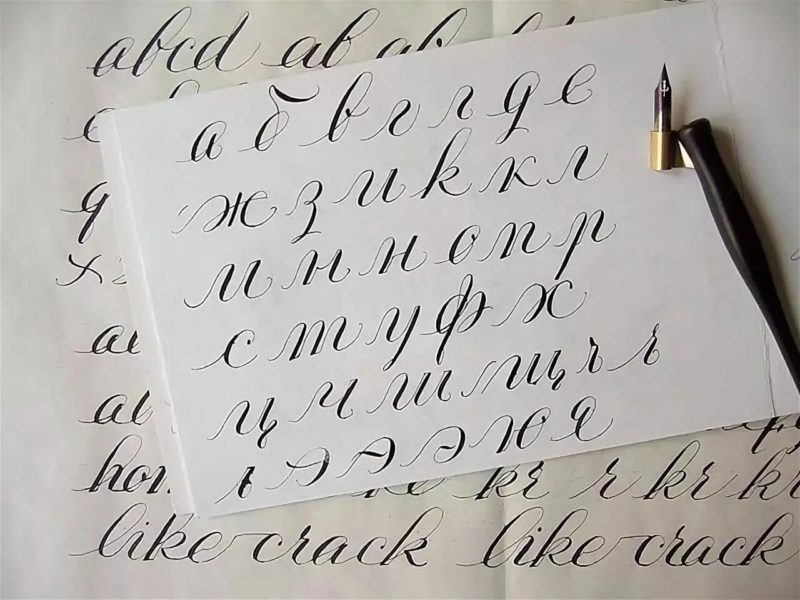 abcd ab ab
а б в г г д е
ж з и к к л
м м н о п р
с т у ф х
ц ч ш щ ъ ъ
ь Э Э Э Ю Я
kr r kr kr
like crack like crack